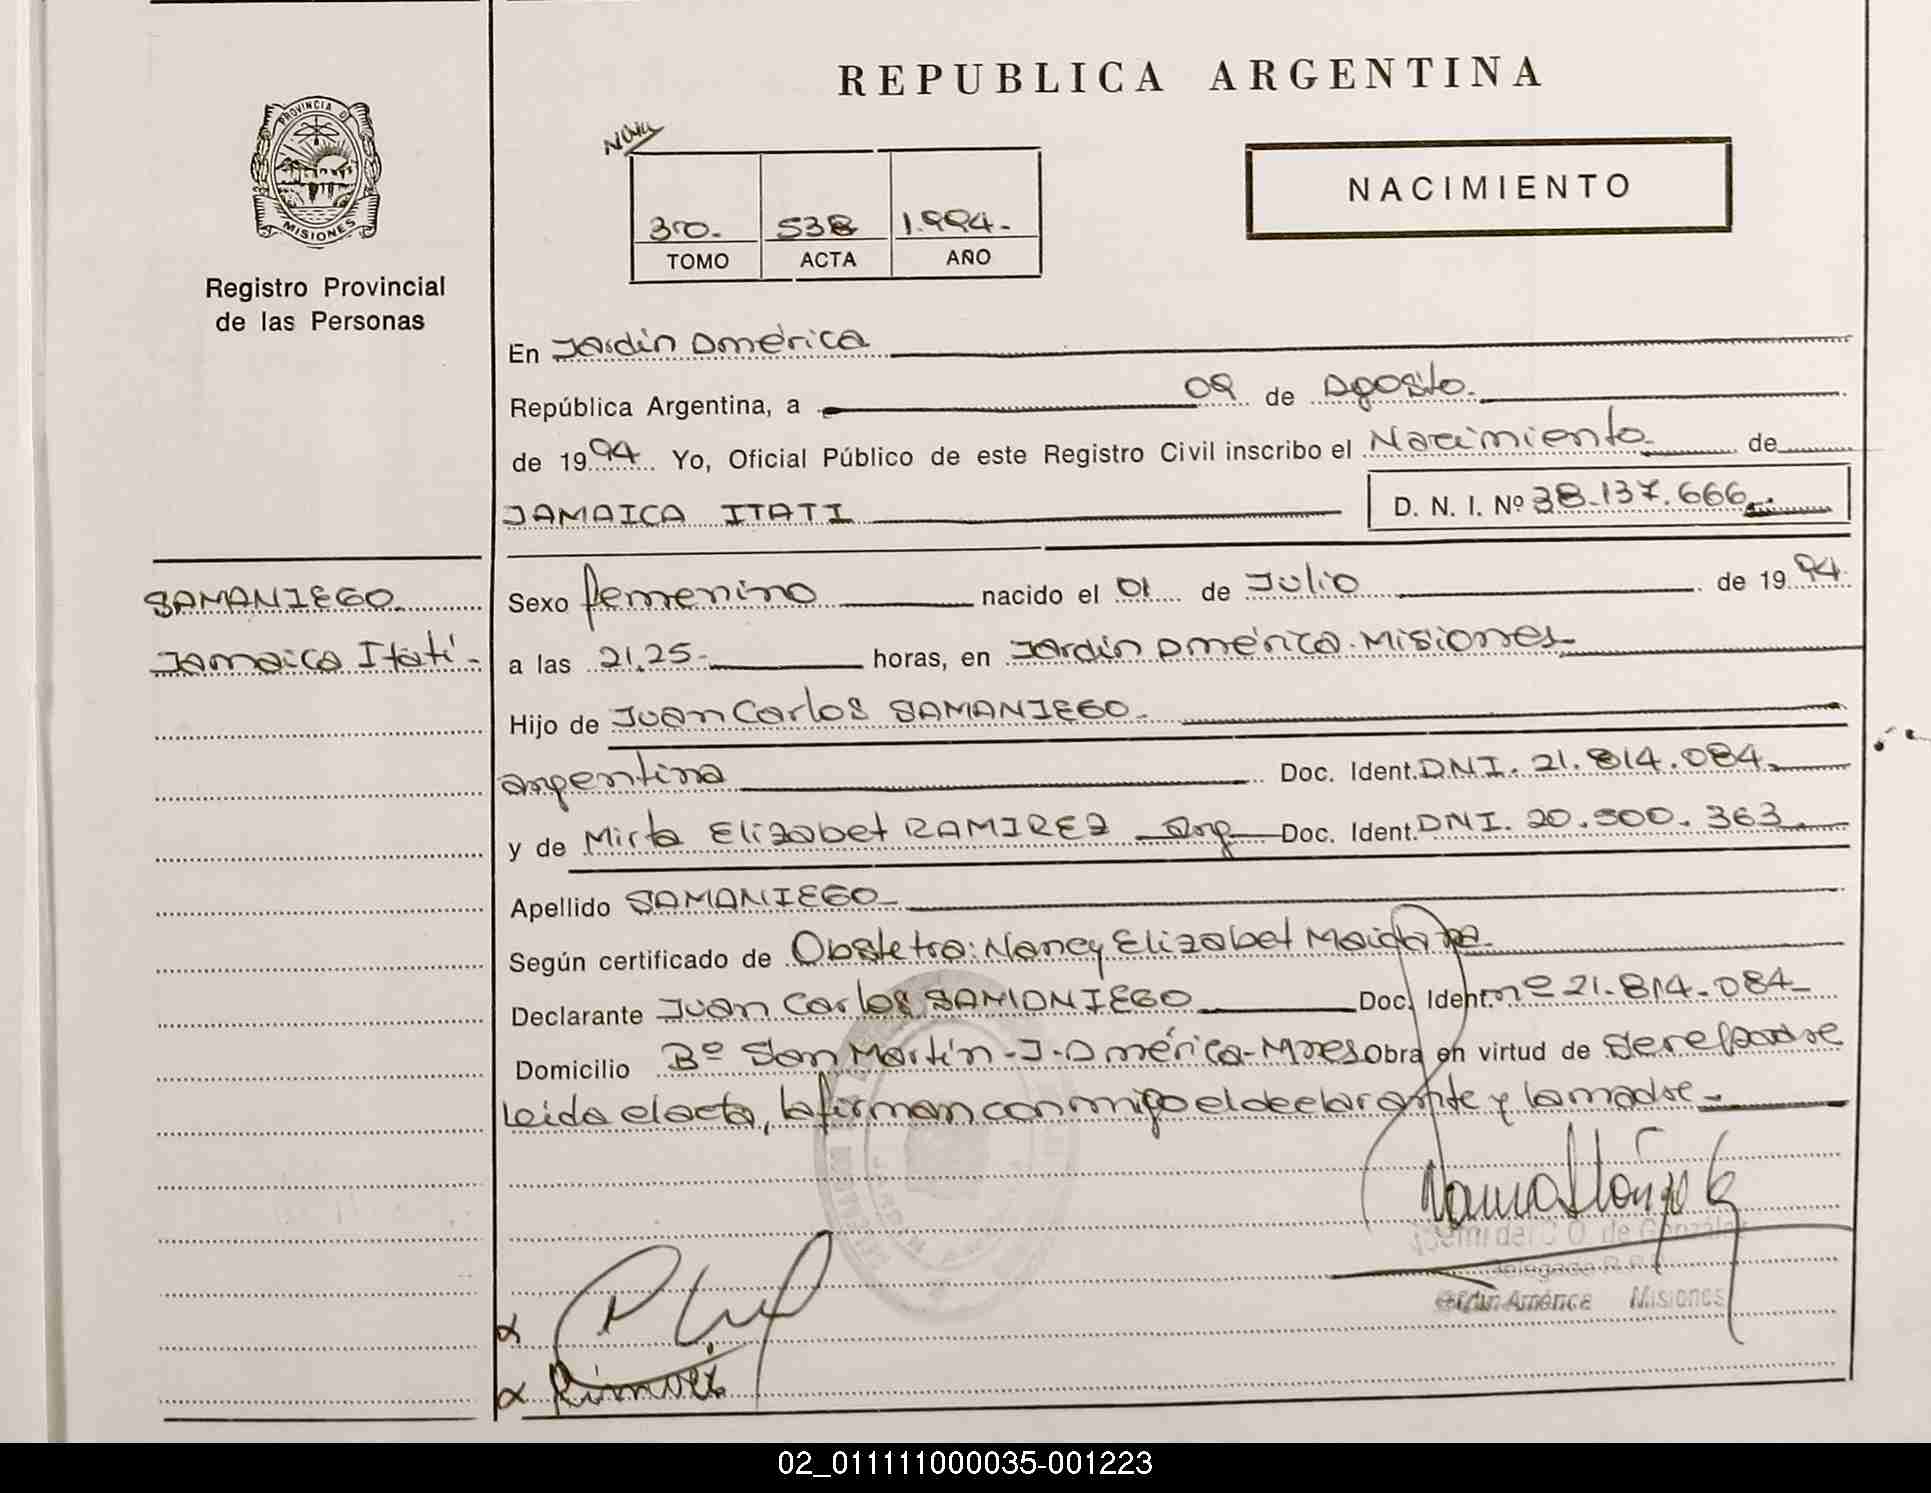 REPUBLICA ARGENTINA
PROVINCIA DE
MISIONES
Registro Provincial
de las Personas
3ro. 538 1.994.
TOMO ACTA AÑO
NACIMIENTO
En Jardin América
República Argentina, a 09 de Agosto.
de 1994. Yo, Oficial Público de este Registro Civil inscribo el Nacimiento de
JAMAICA ITATI D. N. I. Nº 38.137.666
SAMANIEGO
Jamaica Itatí
Sexo femenino nacido el 01 de Julio de 1994
a las 21,25 horas, en Jardin América. Misiones
Hijo de Juan Carlos SAMANIEGO
argentina Doc. Ident. DNI. 21.814.084
y de Mirta Elizabet RAMIREZ Arg Doc. Ident. DNI. 20.500.363
Apellido SAMANIEGO
Según certificado de Obstetra: Nancy Elizabet
Declarante Juan Carlos SAMANIEGO Doc. Ident. nº 21.814.084
Domicilio Bº San Martín - J. América - Mnes Obra en virtud de ser el padre
Leida el acta, la firman conmigo el declarante y la madre
de González
Jardin América Misiones
02_011111000035-001223